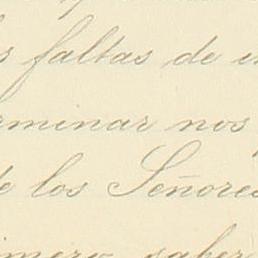 s faltas de
rminar nos
de los Señores
imero saber